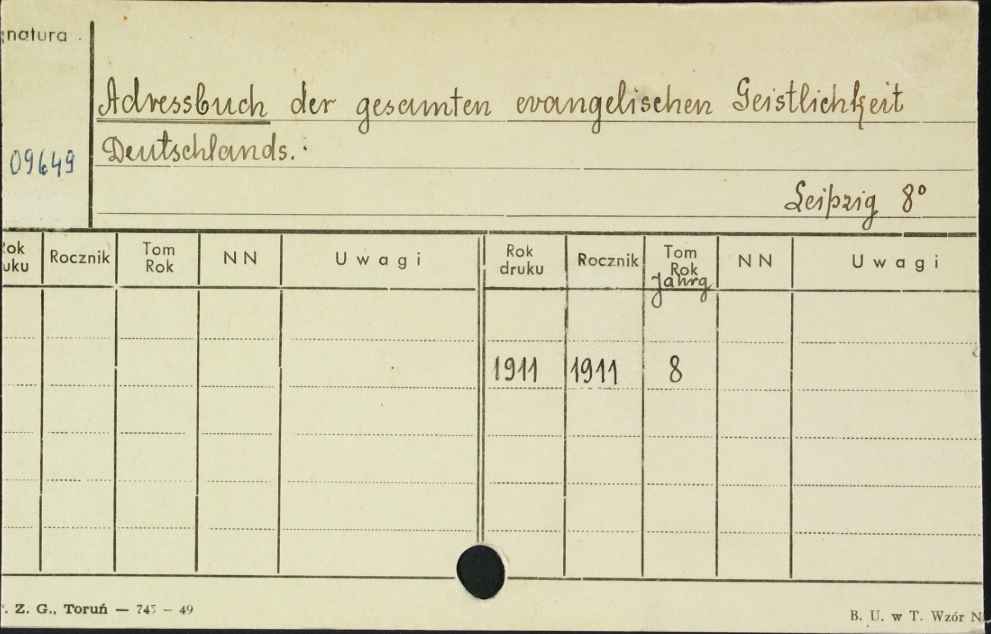 natura
Adressbuch der gesamten evangelischen Geistlichkeit
09649 Deutschlands.
Leipzig 8°
Rok druku Rocznik Tom Rok NN Uwagi Rok druku Rocznik Tom Rok Jahrg NN Uwagi
1911 1911 8
Z. G., Toruń — 745 — 49 B. U. w T. Wzór N